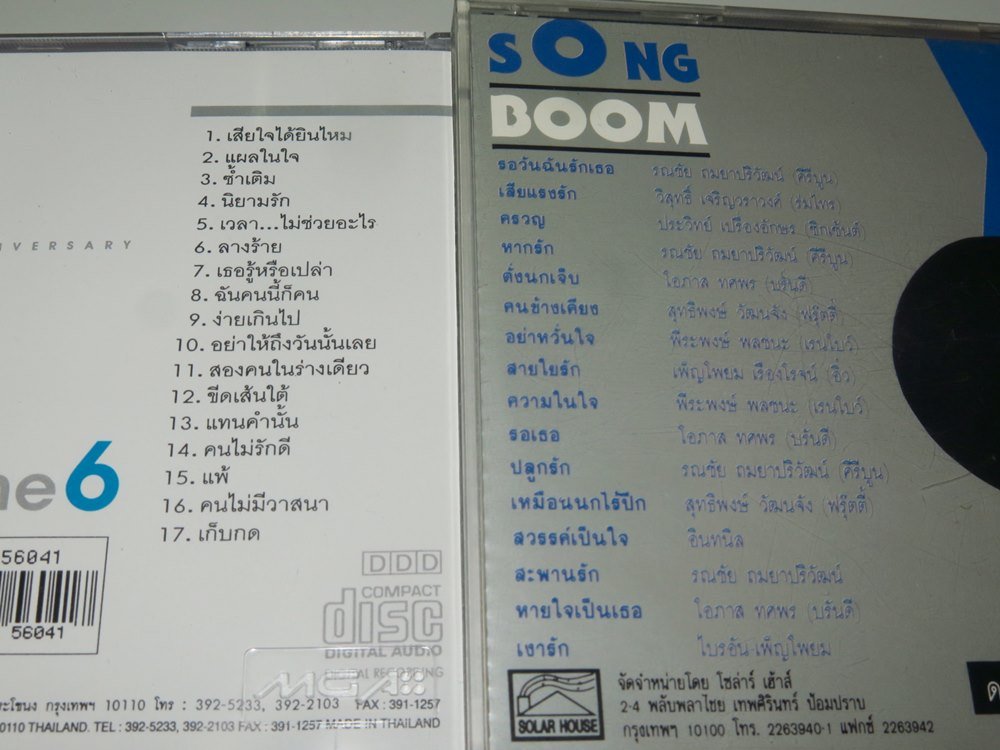 1. เสียใจได้ยินไหม
2. แผลในใจ
3. ซ้ำเติม
4. นิยามรัก
5. เวลา...ไม่ช่วยอะไร
6. ลางร้าย
7. เธอรู้หรือเปล่า
8. ฉันคนนี้ก็คน
9. ง่ายเกินไป
10. อย่าให้ถึงวันนั้นเลย
11. สองคนในร่างเดียว
12. ขีดเส้นใต้
13. แทนคำนั้น
14. คนไม่รักดี
15. แพ้
16. คนไม่มีวาสนา
17. เก็บกด
IVERSARY
me6
56041
56041
DDD
COMPACT
disc
DIGITAL AUDIO
DIGITAL RECORDING
MGA
กรุงเทพฯ 10110 โทร : 392-5233, 392-2103 FAX : 391-1257
10110 THAILAND. TEL : 392-5233, 392-2103 FAX : 391-1257 MADE IN THAILAND
SONG
BOOM
รอวันฉันรักเธอ รณชัย ถมยาปริวัฒน์ (คีรีบูน)
เสียแรงรัก วิสุทธิ์ เจริญวราวงศ์ (ร่มไทร)
ครวญ ประวิทย์ เปรื่องอักษร (ซิกเซ้นต์)
หากรัก รณชัย ถมยาปริวัฒน์ (คีรีบูน)
ดั่งนกเจ็บ โอภาส ทศพร (บรั่นดี)
คนข้างเคียง สุทธิพงษ์ วัฒนจัง (ฟรุ๊ตตี้)
อย่าหวั่นใจ พีระพงษ์ พลชนะ (เรนโบว์)
สายใยรัก เพ็ญโพยม เรืองโรจน์ (อิ๋ว)
ความในใจ พีระพงษ์ พลชนะ (เรนโบว์)
รอเธอ โอภาส ทศพร (บรั่นดี)
ปลูกรัก รณชัย ถมยาปริวัฒน์ (คีรีบูน)
เหมือนนกไร้ปีก สุทธิพงษ์ วัฒนจัง (ฟรุ๊ตตี้)
สวรรค์เป็นใจ อินทนิล
สะพานรัก รณชัย ถมยาปริวัฒน์
หายใจเป็นเธอ โอภาส ทศพร (บรั่นดี)
เงารัก ไบรอัน-เพ็ญโพยม
SOLAR HOUSE
จัดจำหน่ายโดย โซล่าร์ เฮ้าส์
2-4 พลับพลาไชย เทพศิรินทร์ ป้อมปราบ
กรุงเทพฯ 10100 โทร. 2263940-1 แฟกซ์ 2263942